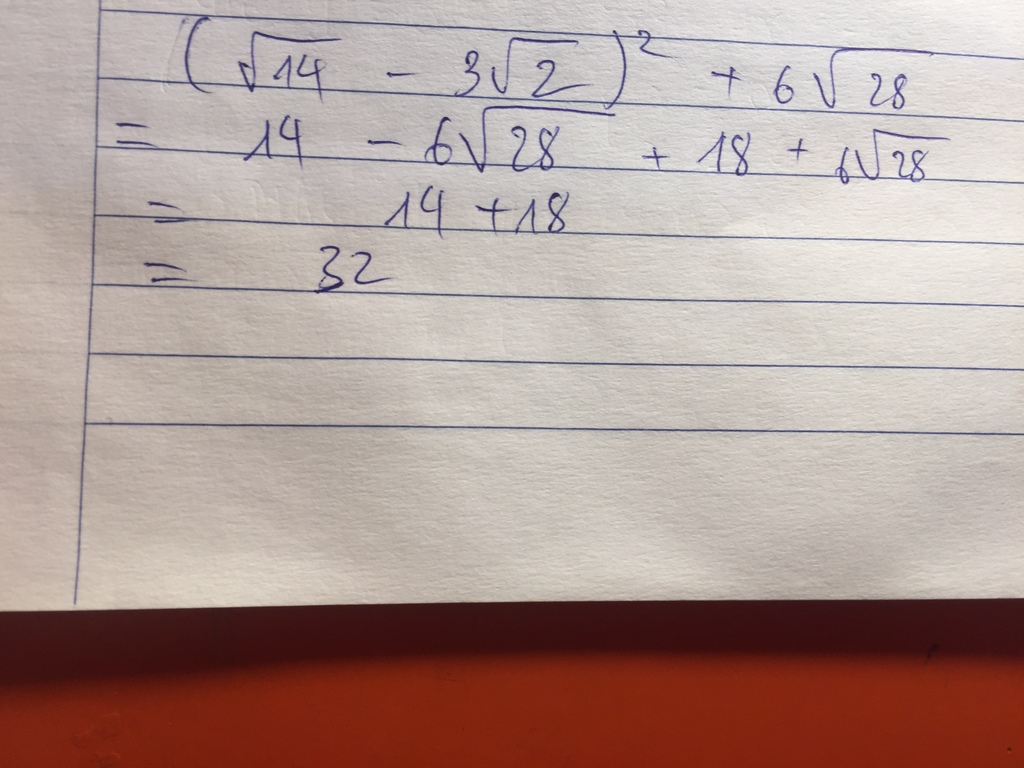 (√14 - 3√2)² + 6√28
= 14 - 6√28 + 18 + 6√28
= 14 + 18
= 32